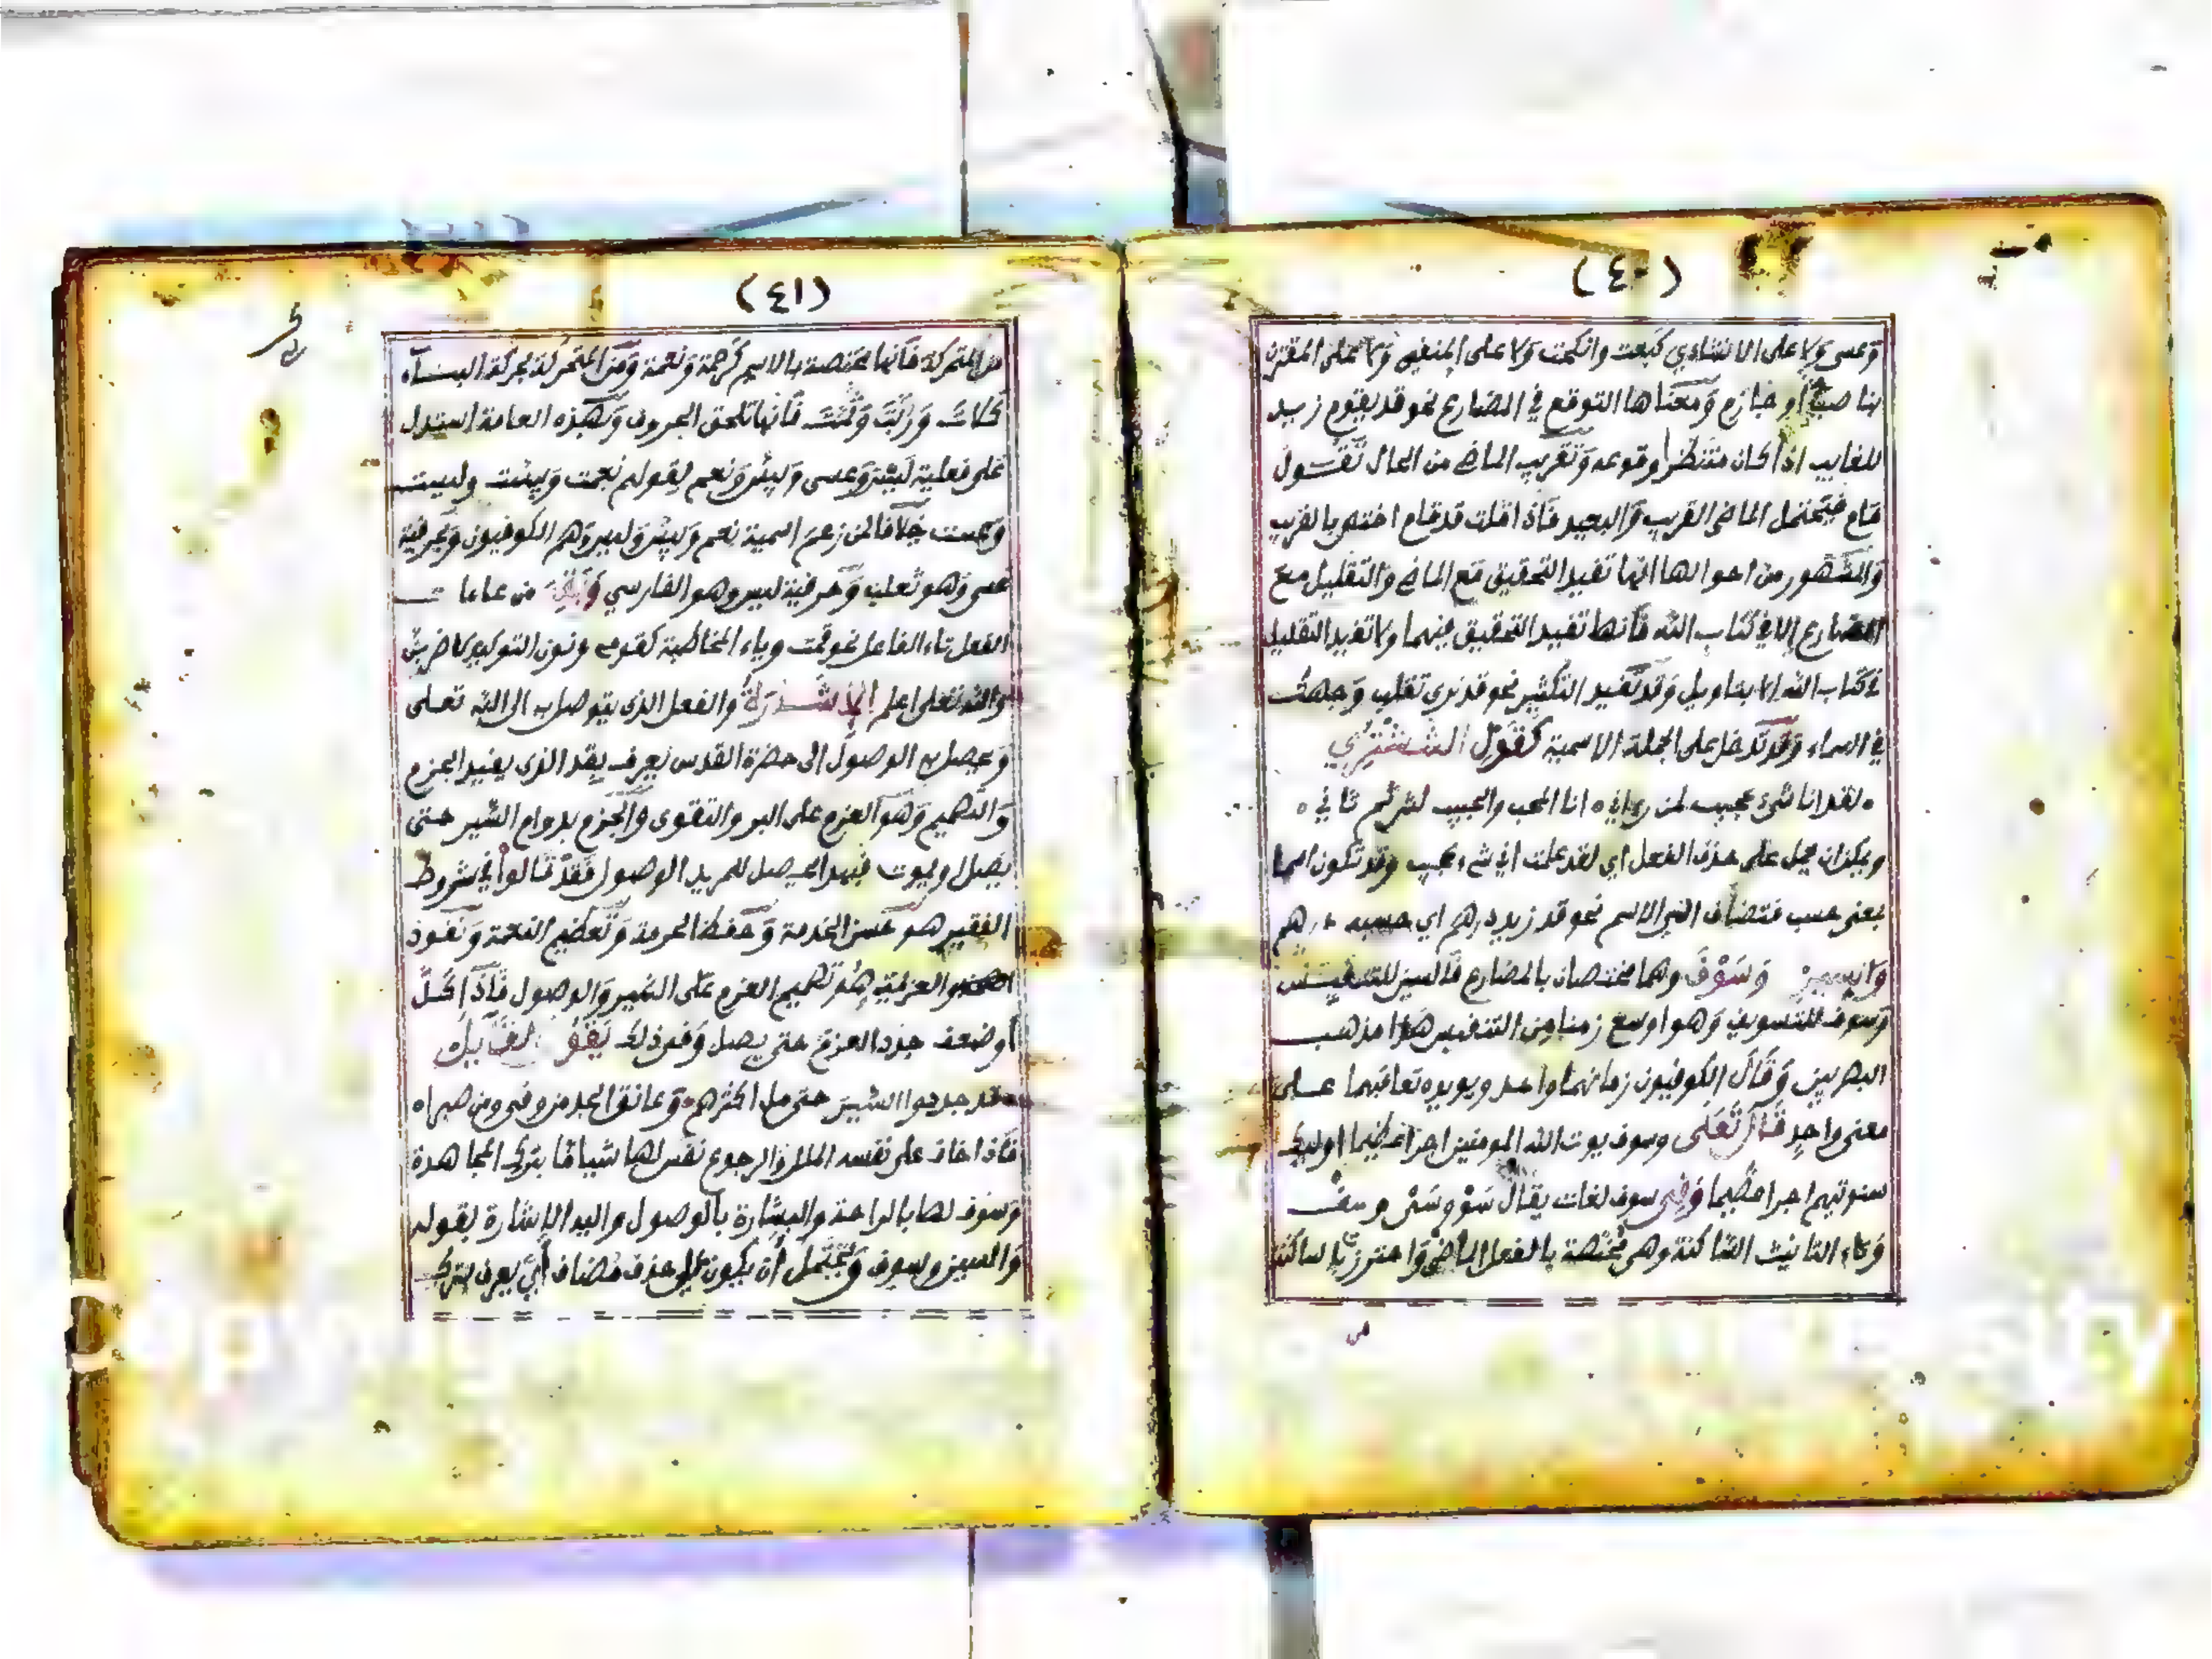 (٤٠)
وعسى ولا على الانشاءي كبعت وانكحت ولا على المنفي ولا على المقترن
بناصب أو جازم ومعناها التوقع في المضارع نحو قد يقوم زيد
للغايب اذا كان منتظرا وقوعه وتقريب الماضي من الحال تقول
قام فيحتمل الماضى القريب والبعيد فاذا قلت قد قام اختص بالقريب
والمشهور من احوالها انها تفيد التحقيق مع الماضي والتقليل مع
المضارع الا في كتاب الله فانها تفيد التحقيق فيهما ولا تفيد التقليل
في كتاب الله الا بتاويل وقد تفيد التكثير نحو قد نرى تقلب وجهك
في السماء وقد تدخل على الجملة الاسمية كقول الششتري
لقد انا شئ عجيب لمن رءاني ه انا المحب والحبيب لس ثم ثاني ه
ويمكن ان يحمل على حذف الفعل اي لقد علمت اني شيء عجيب وقد تكون اسما
بمعنى حسب فتضاف الى الاسم نحو قد زيد درهم اي حسبه درهم
والسين وسوف وهما مختصان بالمضارع فالسين للتنفيس
وسوف للتسويف وهو اوسع زمنا من التنفيس هذا مذهب
البصريين وقال الكوفيون زمانهما واحد ويويده تعاقبهما على
معنى واحد قال تعلى وسوف يوت الله المومنين اجرا عظيما اوليك
سنوتيهم اجرا عظيما وفي سوف لغات يقال سو وسى وسف
وتاء التانيث الساكنة وهي مختصة بالفعل الماضي واحترز بالساكنة
من
(٤١)
من المتحركة فانها مختصة بالاسم كرحمة ونعمة ومن المتحركة بحركة البناء
كلات وربت وثمت فانها تلحق الحروف وبهذه العامة استدل
على فعلية ليس وعسى وبيس ونعم لقولهم نعمت وبيست وليست
وعست خلافا لمن زعم اسمية نعم وبيس وليس وهم الكوفيون وحرفية
عسى وهو ثعلب وحرفية ليس وهو الفارسي وبقي من علامات
الفعل تاء الفاعل نحو قمت وياء المخاطبة كقومي ونون التوكيد كاضربن
والله تعلى اعلم الإشارة والفعل الذى يتوصل به الى الله تعلى
ويحصل به الوصول الى حضرة القدس يعرف بقد الذى يفيد الجزم
والتصميم وهو العزم على البر والتقوى والجزم بدوام السير حتى
يصل او يموت فبهذا يحصل للمريد الوصول فقد قالوا في شروط
الفقير هو حسن الخدمة وحفظ الحرمة وتعظيم النعمة ونفوذ
العزيمة هو تصميم العزم على السير والوصول فاذا كل
أو ضعف جدد العزم حتى يصل وفي ذلك يقول القايل
قد جددوا السير حتى مل اكثرهم وعانق المجد من وفى ومن صبرا ه
فاذا خاف على نفسه الملل والرجوع نفس لها شيا ما بترك المجاهدة
وسوف لها بالراحة والبشارة بالوصول واليه الإشارة بقوله
والسين وسوف ويحتمل أن يكون على حذف مضاف أي يعرف بترك